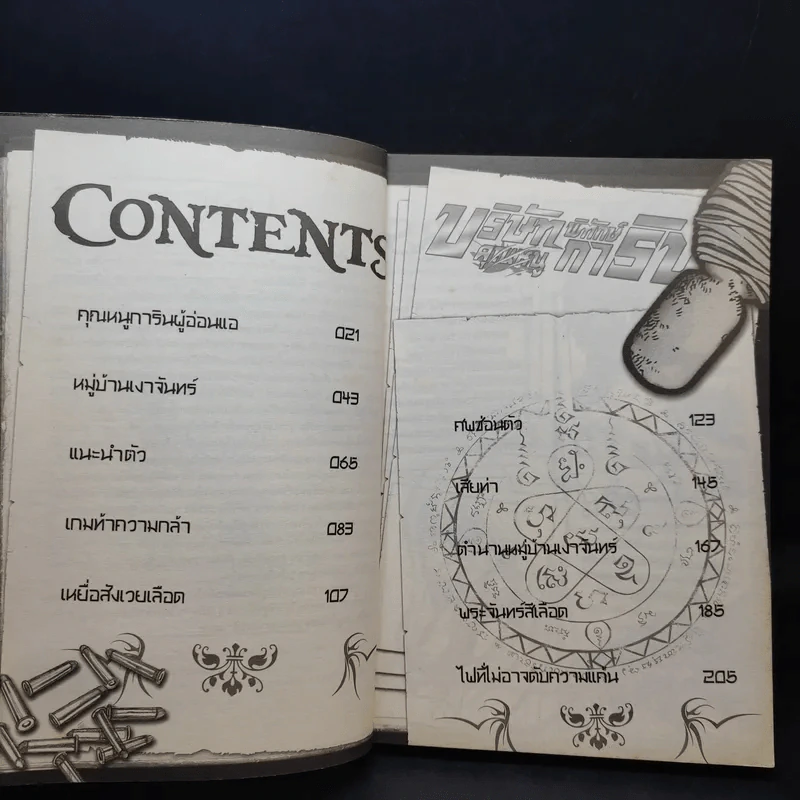 CONTENTS
คุณหนูการินผู้อ่อนแอ 021
หมู่บ้านเงาจันทร์ 043
แนะนำตัว 065
เกมท้าความกล้า 083
เหยื่อสังเวยเลือด 107
บริษัท พิทักษ์
การิน
ศพซ่อนตัว 123
เสียท่า 145
ตำนานหมู่บ้านเงาจันทร์ 167
พระจันทร์สีเลือด 185
ไฟที่ไม่อาจดับความแค้น 205